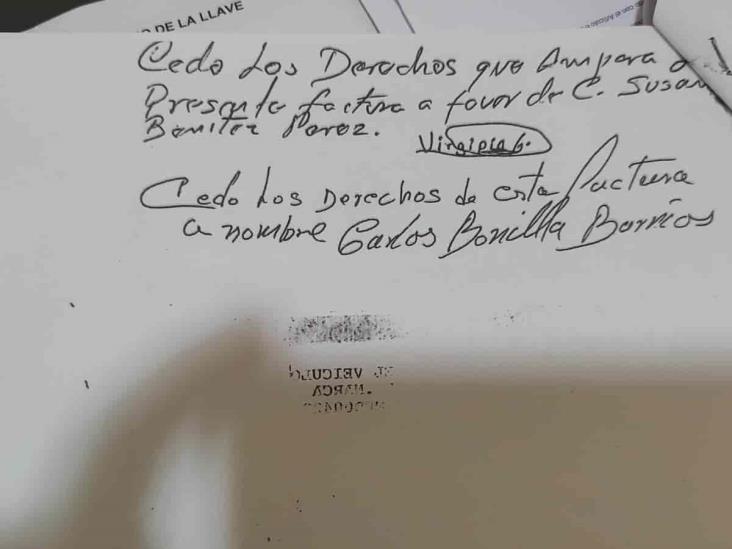 DE LA LLAVE
Cedo Los Derechos que Ampara
Presente factura a favor de C. Susan
Benitez Perez.
Virginia G.
Cedo Los Derechos de esta Factura
a nombre Carlos Bonilla Barrios
VEICULO
MARCA